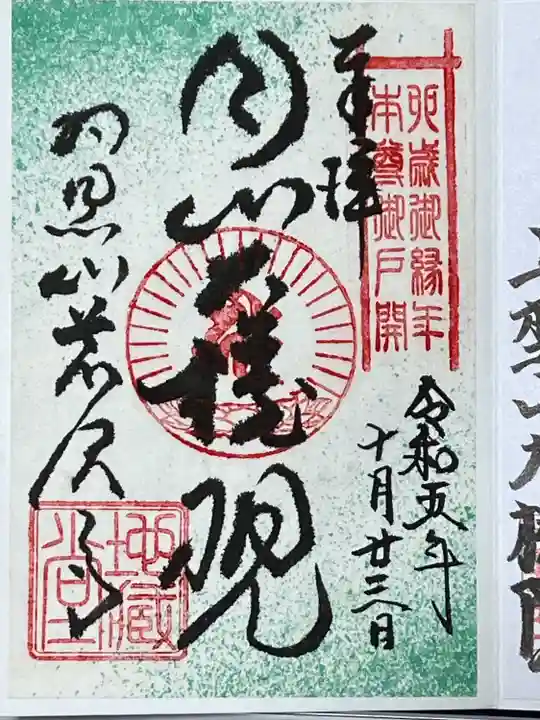 卯歳御縁年
本尊御戸開
奉拝
月山大権現
羽黒山荒沢寺
地蔵堂
令和五年
十月廿三日